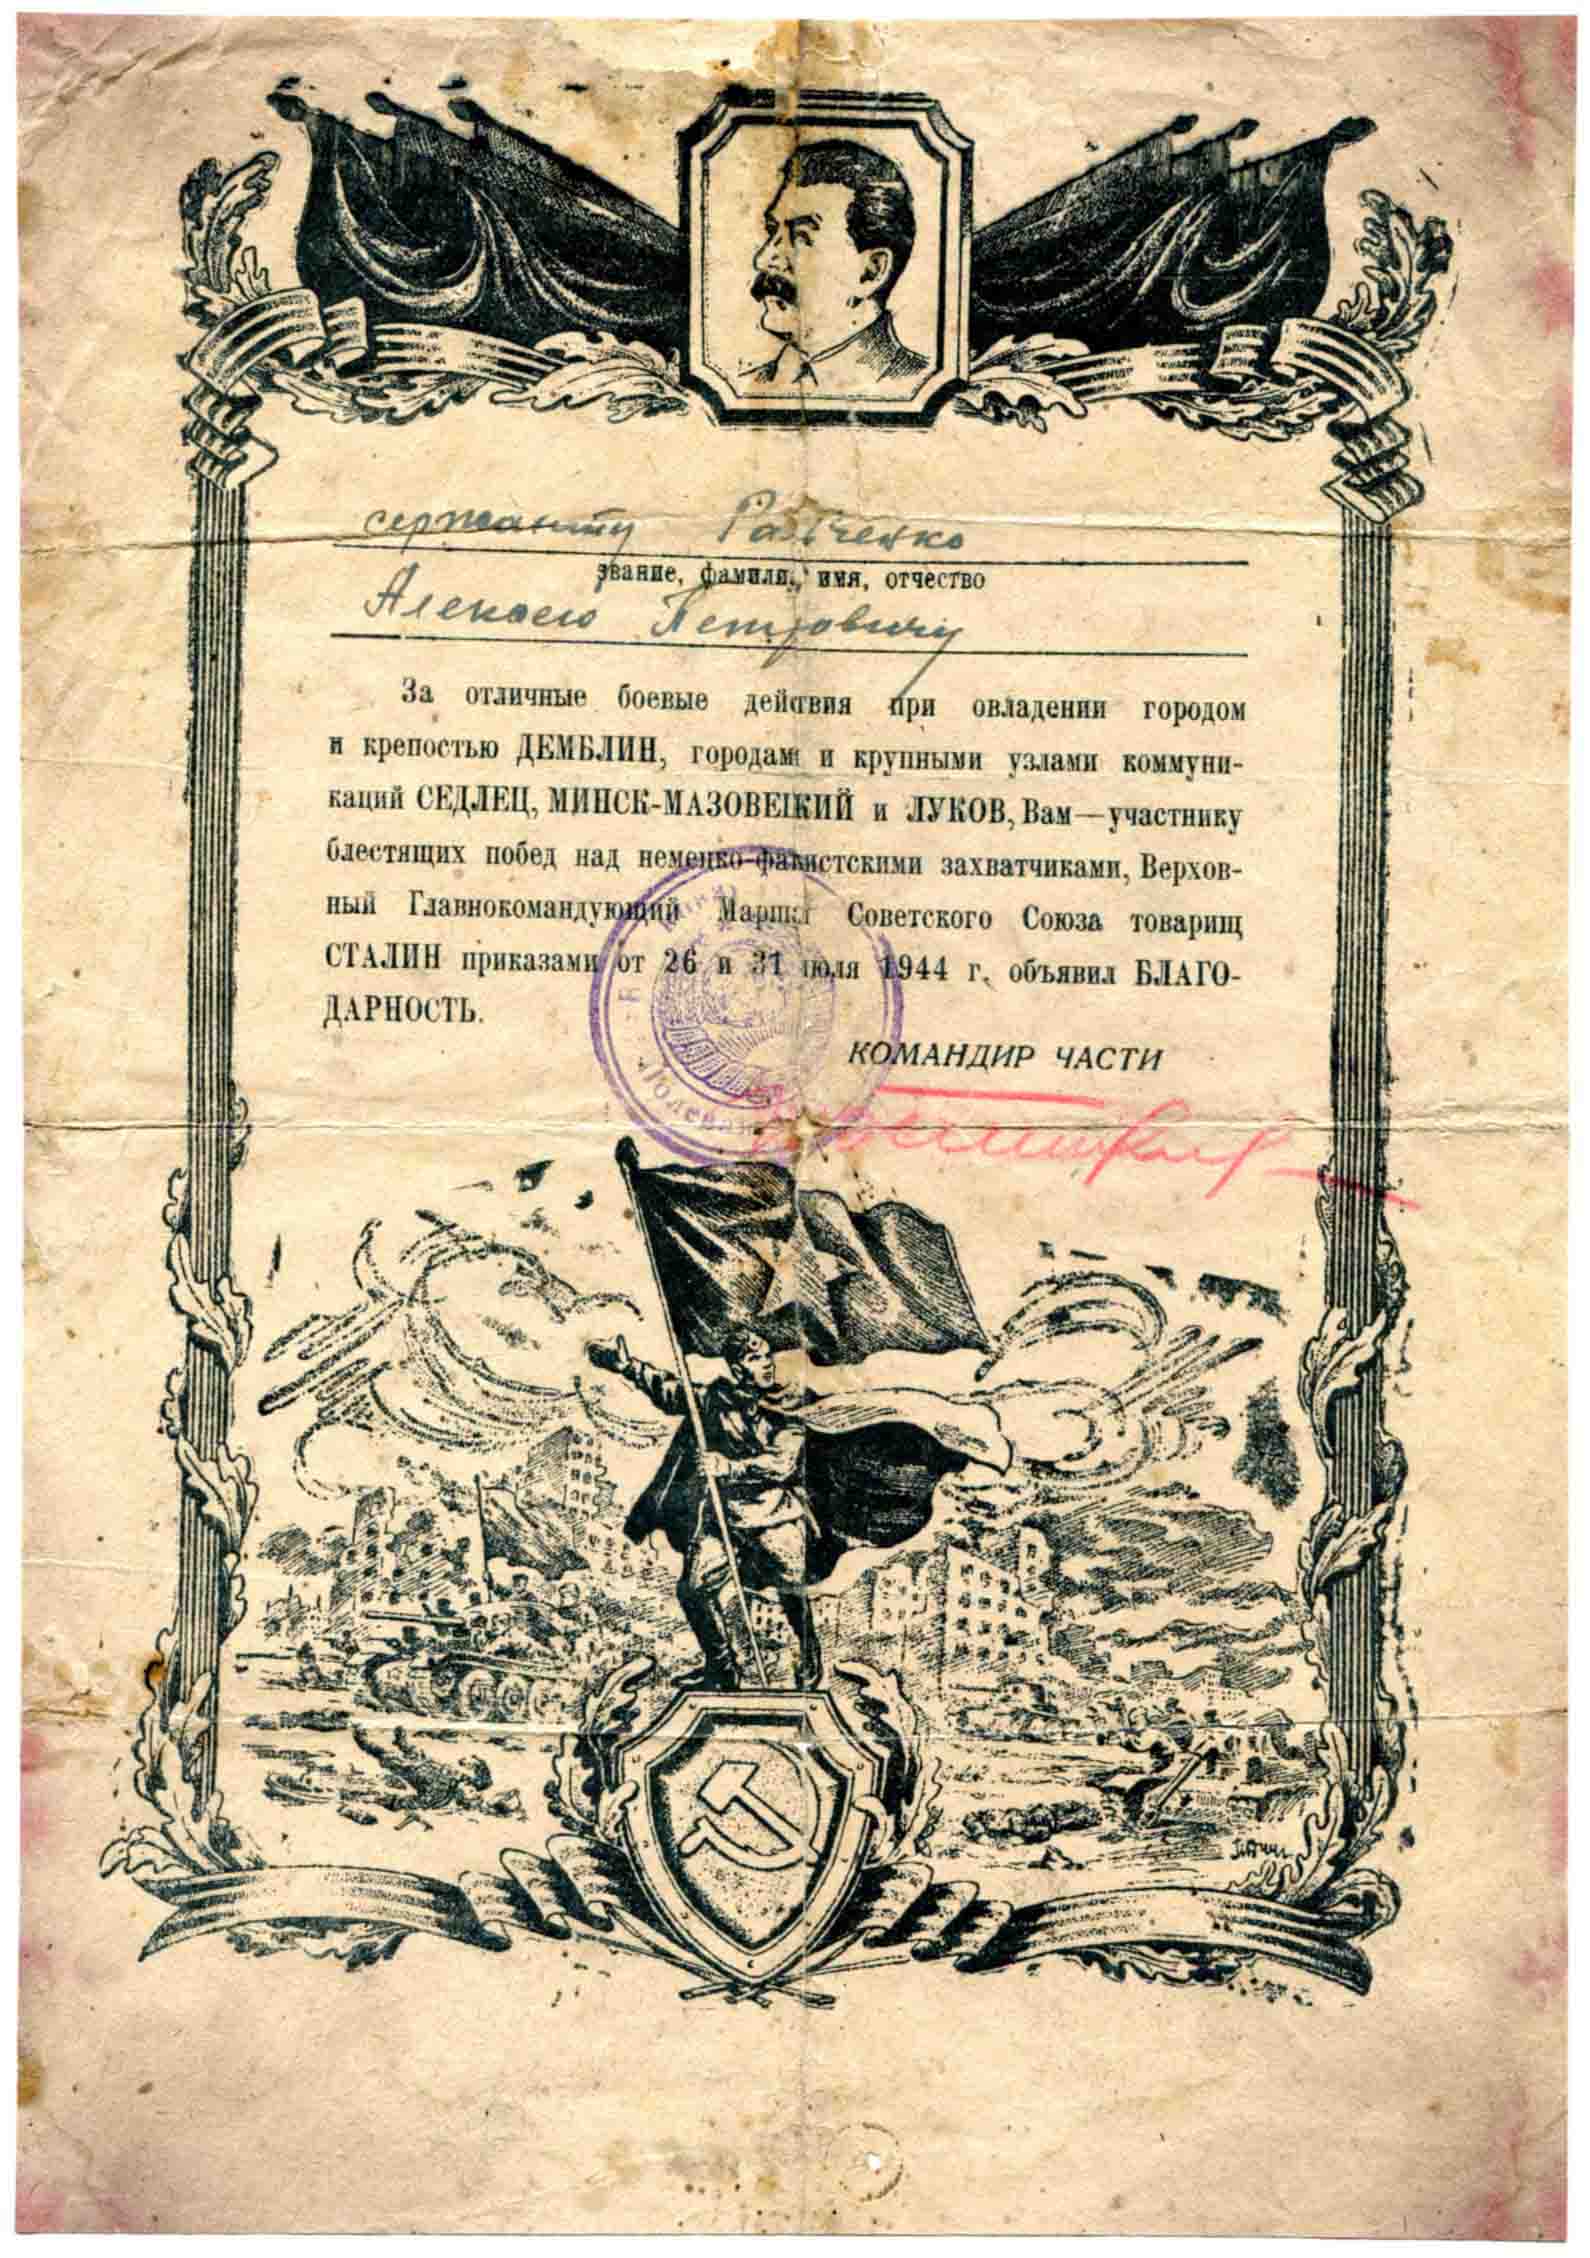 сержанту Радченко
звание, фамилия, имя, отчество
Алексею Петровичу
За отличные боевые действия при овладении городом
и крепостью ДЕМБЛИН, городами и крупными узлами коммуни-
каций СЕДЛЕЦ, МИНСК-МАЗОВЕЦКИЙ и ЛУКОВ, Вам—участнику
блестящих побед над немецко-фашистскими захватчиками, Верхов-
ный Главнокомандующий Маршал Советского Союза товарищ
СТАЛИН приказами от 26 и 31 июля 1944 г. объявил БЛАГО-
ДАРНОСТЬ.
КОМАНДИР ЧАСТИ